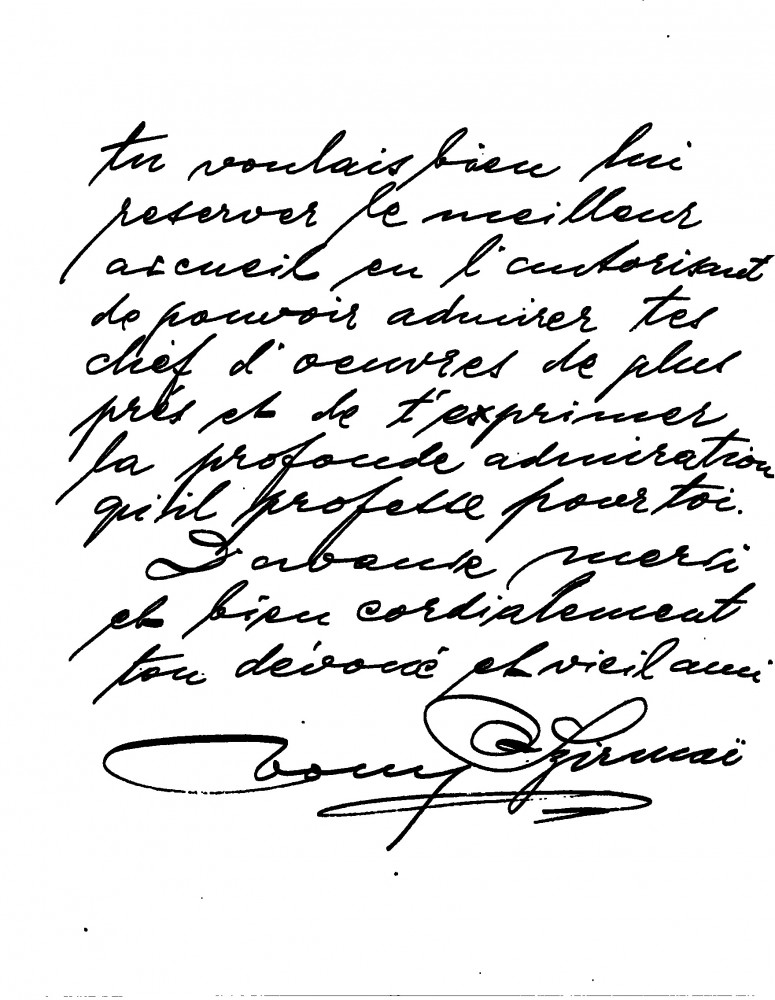 tu voulais bien lui
reserver le meilleur
accueil en l'autorisant
de pouvoir admirer tes
chef d'oeuvres de plus
près et de t'exprimer
la profonde admiration
qu'il professe pour toi.
D'avance merci
et bien cordialement
ton dévoué et vieil ami
Tony Szirmaï